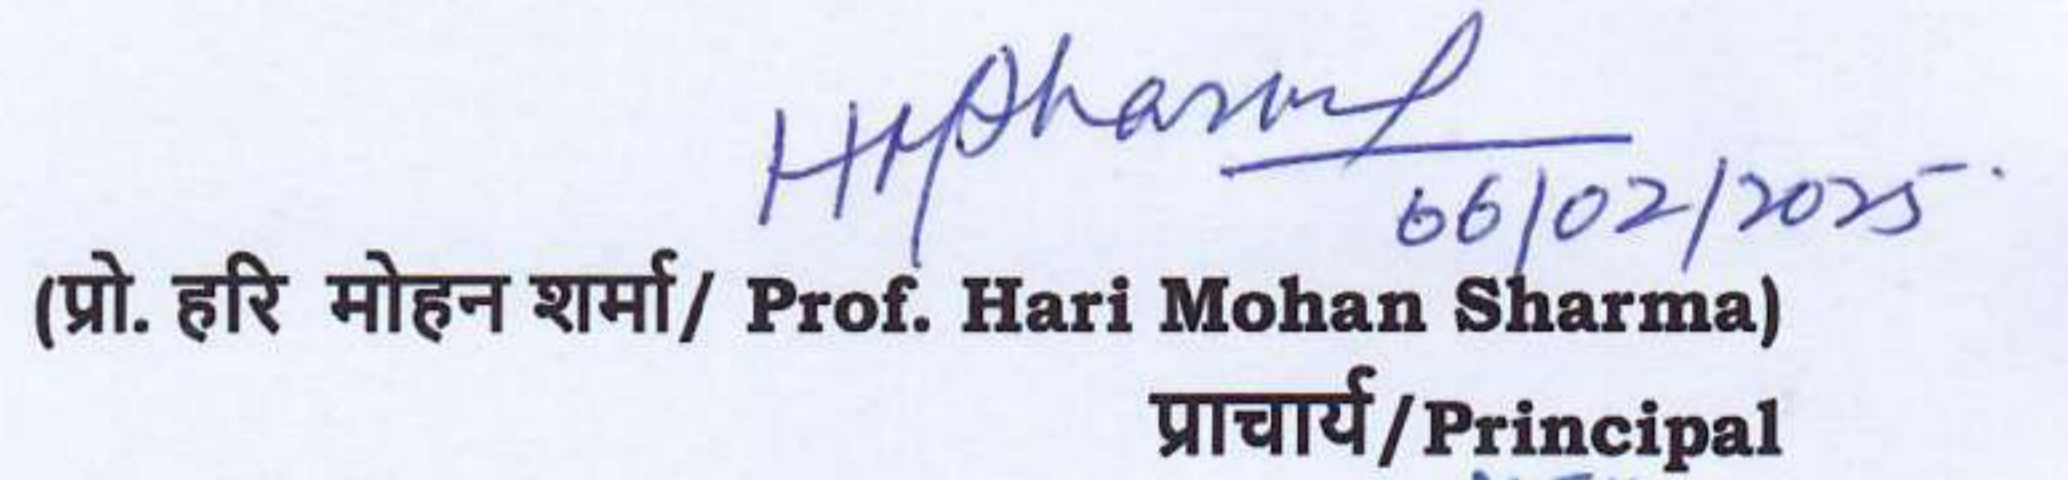 HMSharma
06/02/2025
(प्रो. हरि मोहन शर्मा/ Prof. Hari Mohan Sharma)
प्राचार्य/Principal